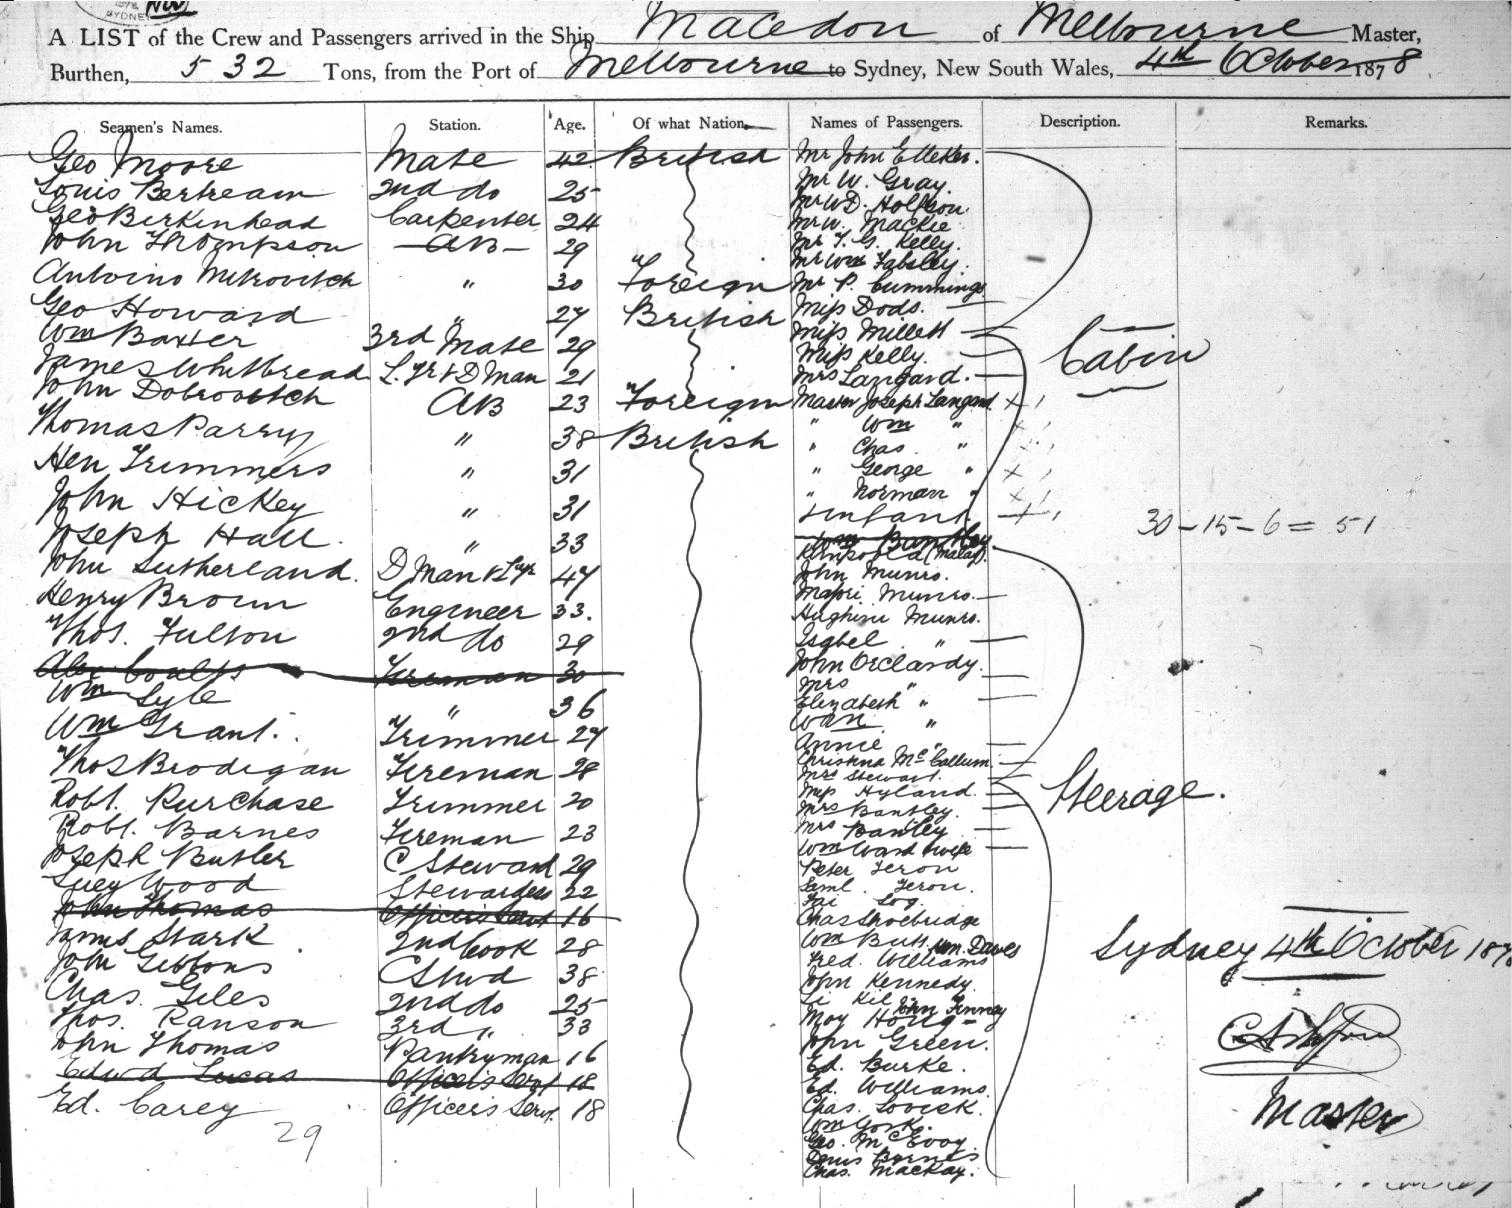 SYDNEY
A LIST of the Crew and Passengers arrived in the Ship Macedon of Melbourne Master,
Burthen, 532 Tons, from the Port of Melbourne to Sydney, New South Wales, 4th October 1878
Seamen's Names. Station. Age. Of what Nation. Names of Passengers. Description. Remarks.
Geo Moore Mate 42 British
Louis Bertream 2nd do 25
Geo Berkinhead Carpenter 24
John Thompson AB 29
Antoino Mitrovitch " 30 Foreign
Geo Howard " 27 British
Wm Baxter 3rd Mate 29
James Whitbread L. Tr & D Man 21
John Dobrovitch AB 23 Foreign
Thomas Parry " 38 British
Hen Trimmers " 31
John Hickey " 31
Joseph Hall " 33
John Sutherland D Man & Lpr 47
Henry Brown Engineer 33.
Thos. Fulton 2nd do 29
Alex Coults Fireman 30
Wm Lyle " 36
Wm Grant Trimmer 27
Thos Brodigan Fireman 28
Robt. Purchase Trimmer 20
Robt. Barnes Fireman 23
Joseph Butler C Steward 29
Lucy Wood Stewardess 22
John Thomas Officers Servt 16
James Stark 2nd Cook 28
John Gibbons C Stwd 38
Chas. Giles 2nd do 25
Thos. Ranson 3rd " 33
John Thomas Pantryman 16
Edwd Lucas Officers Servt 18
Ed. Carey Officers Servt. 18
29
Mr John Elleker.
Mr W. Gray.
Mr W D.
Mr W. Mackie
Mr T. G. Kelly.
Mr Wm Tabsley.
Mr P. Cummings
Miss Dods.
Miss Millett
Miss Kelly.
Mrs Langard.
Master Joseph Langard
" Wm "
" Chas. "
" George "
" Norman "
Infant
Wm Bantley
(Malay).
John Munro.
Munro.
Hughini Munro.
Isabel "
John
Mrs "
Elizabeth "
"
Annie "
Christina McCallum
Mrs Stewart.
Miss Hyland
Mrs Bantley.
Mrs Bantley
Wm Ward & wife
Peter Feron
Saml. Feron.
Fai Log.
Chas Shoebridge
Wm Butt Wm. Davies
Fred. Williams
John Kennedy.
Li Kil John Finney
Moy Hong
John Green.
Ed. Burke.
Ed. Williams.
Chas. Lovick.
Wm York.
Geo. McEvoy.
Denis Byrnes
Chas. Mackay.
Cabin
30-15-6 = 51
Steerage.
Sydney 4th October 1878
Master